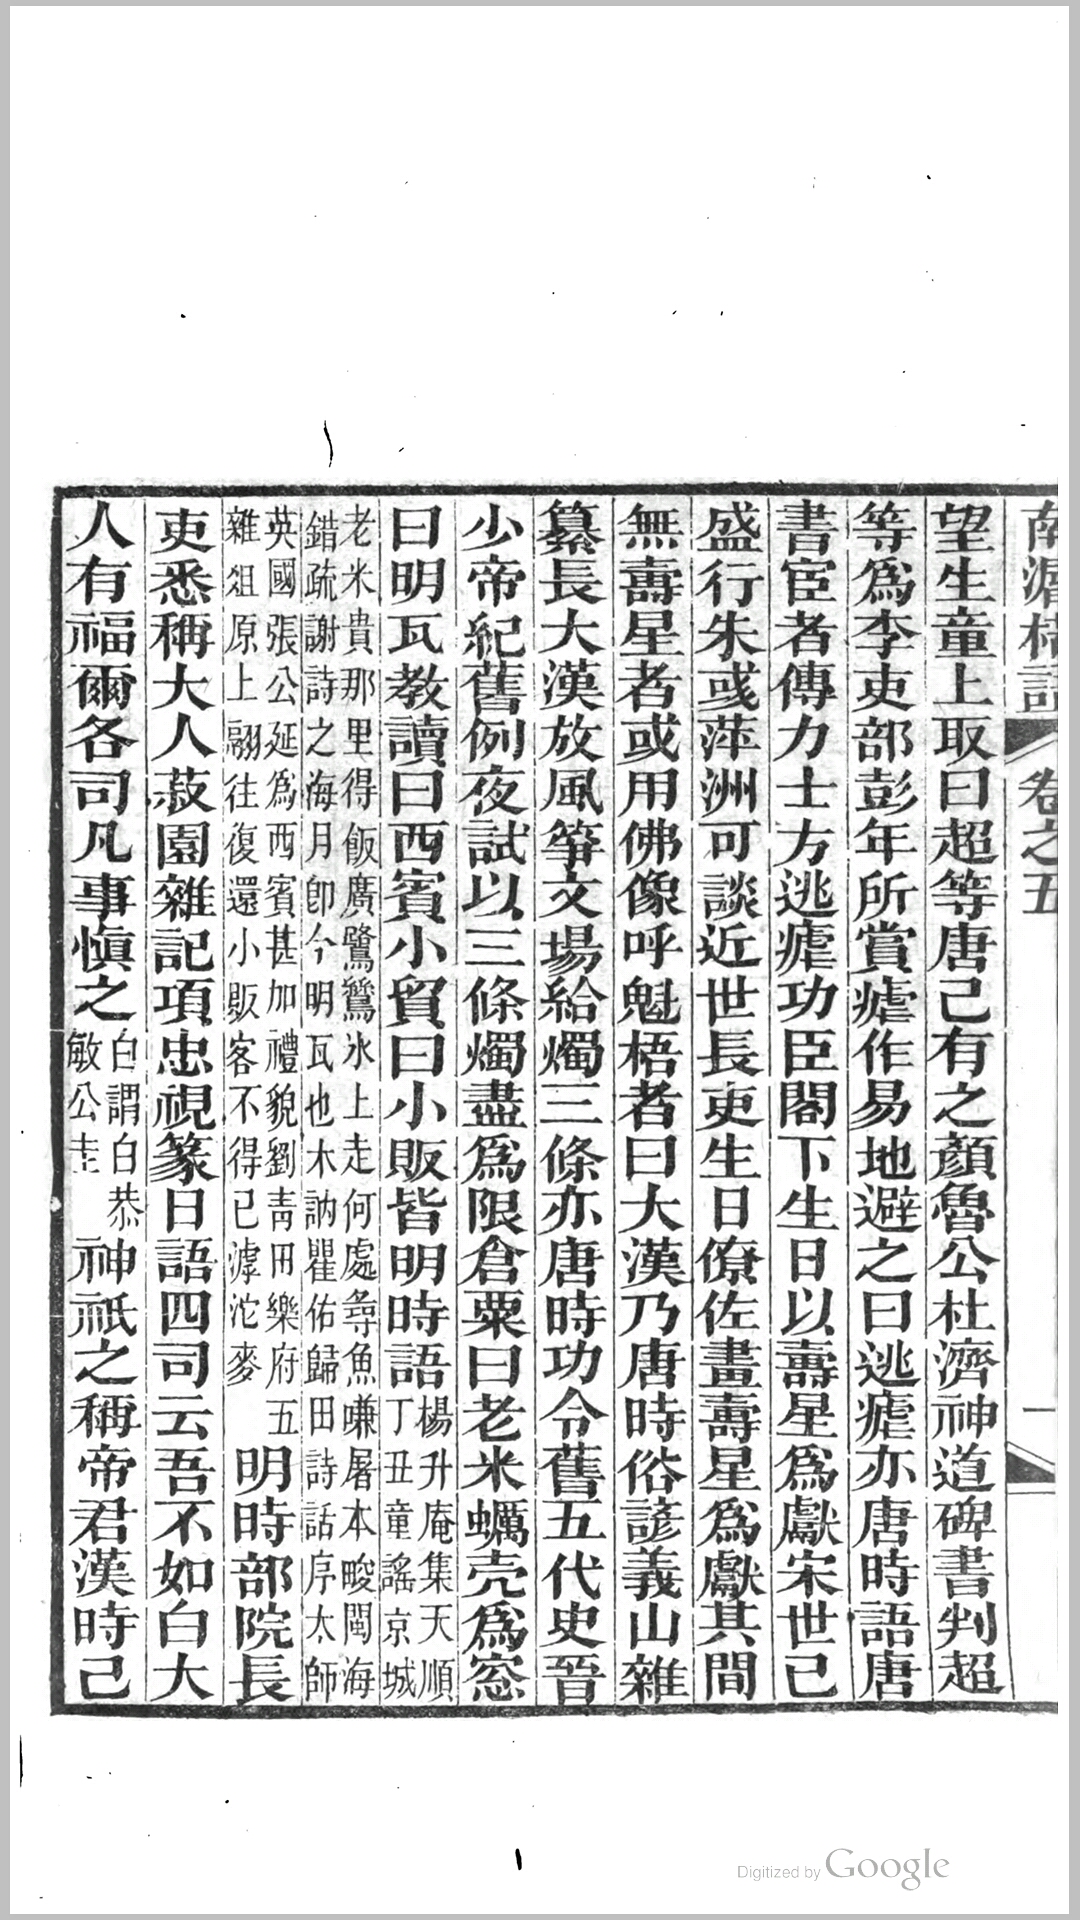 南漘楛語 卷之五 一
望生童上取曰超等唐己有之顏魯公杜濟神道碑書判超
等爲李吏部彭年所賞瘧作易地避之曰逃瘧亦唐時語唐
書宦者傳力士方逃瘧功臣閣下生日以壽星爲獻宋世已
盛行朱彧萍洲可談近世長吏生日僚佐畫壽星爲獻其間
無壽星者或用佛像呼魁梧者曰大漢乃唐時俗諺義山雜
纂長大漢放風箏文場給燭三條亦唐時功令舊五代史晉
少帝紀舊例夜試以三條燭盡爲限倉粟曰老米蠣壳爲窓
曰明瓦教讀曰西賓小貿曰小販皆明時語
楊升庵集天順
丁丑童謠京城
老米貴那里得飯廣鷺鷥氷上走何處尋魚嗛屠本畯閩海
錯疏謝詩之海月卽今明瓦也木訥瞿佑歸田詩話序太師
英國張公延爲西賓甚加禮貌劉靑田樂府五
雜俎原上翮往復還小販客不得已滹沱麥
明時部院長
吏悉稱大人菽園雜記項忠視篆日語四司云吾不如白大
人有福爾各司凡事愼之
白謂白恭
敏公圭
神祇之稱帝君漢時己
Digitized by Google